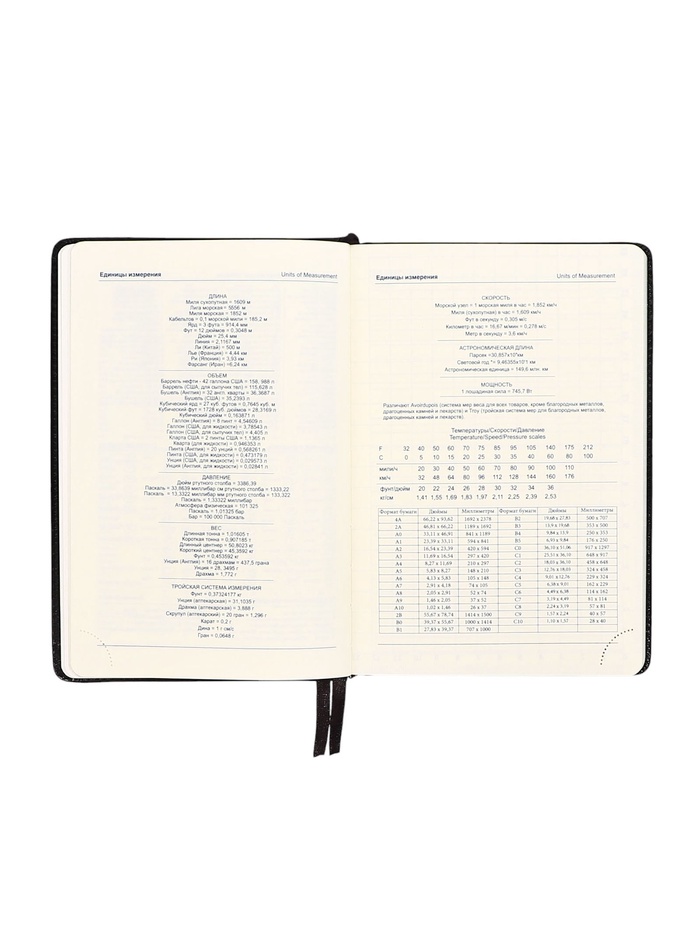 Единицы измерения Units of Measurement
ДЛИНА
Миля сухопутная = 1609 м
Лига морская = 5556 м
Миля морская = 1852 м
Кабельтов = 0,1 морской мили = 185,2 м
Ярд = 3 фута = 914,4 мм
Фут = 12 дюймов = 0,3048 м
Дюйм = 25,4 мм
Линия = 2,1167 мм
Ли (Китай) = 500 м
Лье (Франция) = 4,44 км
Ри (Япония) = 3,93 км
Фарсанг (Иран) =6,24 км
ОБЪЕМ
Баррель нефти - 42 галлона США = 158, 988 л
Баррель (США, для сыпучих тел) = 115,628 л
Бушель (Англия) = 32 англ. кварты = 36,3687 л
Бушель (США) = 35,2393 л
Кубический ярд = 27 куб. футов = 0,7645 куб. м
Кубический фут = 1728 куб. дюймов = 28,3169 л
Кубический дюйм = 0,163871 л
Галлон (Англия) = 8 пинт = 4,54609 л
Галлон (США, для жидкости) = 3,78543 л
Галлон (США, для сыпучих тел) = 4,405 л
Кварта США = 2 пинты США = 1,1365 л
Кварта (для жидкости) = 0,946353 л
Пинта (Англия) = 20 унций = 0,568261 л
Пинта (США, для жидкости) = 0,473179 л
Унция (США, для жидкости) = 0,029573 л
Унция (Англия, для жидкости) = 0,02841 л
ДАВЛЕНИЕ
Дюйм ртутного столба = 3386,39
Паскаль = 33,8639 миллибар см ртутного столба = 1333,22
Паскаль = 13,3322 миллибар мм ртутного столба = 133,322
Паскаль = 1,33322 миллибар
Атмосфера физическая = 101 325
Паскаль = 1,01325 бар
Бар = 100 000 Паскаль
ВЕС
Длинная тонна = 1,01605 т
Короткая тонна = 0,907185 т
Длинный центнер = 50,8023 кг
Короткий центнер = 45,3592 кг
Фунт = 0,453592 кг
Унция (Англия) = 16 драхмам = 437,5 грана
Унция = 28, 3495 г
Драхма = 1,772 г
ТРОЙСКАЯ СИСТЕМА ИЗМЕРЕНИЯ
Фунт = 0,37324177 кг
Унция (аптекарская) = 31,1035 г
Драхма (аптекарская) = 3,888 г
Скрупул (аптекарский) = 20 гран = 1,296 г
Карат = 0,2 г
Гран = 0,0648 г
Единицы измерения Units of Measurement
СКОРОСТЬ
Морской узел = 1 морская миля в час = 1,852 км/ч
Миля (сухопутная) в час = 1,609 км/ч
Фут в секунду = 0,305 м/с
Километр в час = 16,67 м/мин = 0,278 м/с
Метр в секунду = 3,6 км/ч
АСТРОНОМИЧЕСКАЯ ДЛИНА
Астрономическая единица = 149,6 млн. км
МОЩНОСТЬ
1 лошадиная сила = 745,7 Вт
Различают Avoirdupois (система мер веса для всех товаров, кроме благородных металлов,
драгоценных камней и лекарств) и Troy (тройская система мер для благородных металлов,
драгоценных камней и лекарств).
Температуры/Скорости/Давление
Temperature/Speed/Pressure scales
F 32 40 50 60 70 75 85 95 105 140 175 212
C 0 5 10 15 20 25 30 35 40 60 80 100
мили/ч 20 30 40 50 60 70 80 90 100 110
км/ч 32 48 64 80 96 112 128 144 160 176
фунт/дюйм 20 22 24 26 28 30 32 34 36
кг/см 1,41 1,55 1,69 1,83 1,97 2,11 2,25 2,39 2,53
Формат бумаги Дюймы Миллиметры Формат бумаги Дюймы Миллиметры
4A 66,22 x 93,62 1692 x 2378 B2 19,68 x 27,83 500 x 707
2A 46,81 x 66,22 1189 x 1692 B3 13,9 x 19,68 353 x 500
A0 33,11 x 46,81 841 x 1189 B4 9,84 x 13,9 250 x 353
A1 23,39 x 33,11 594 x 841 B5 6,93 x 9,84 176 x 250
A2 16,54 x 23,39 420 x 594 C0 36,10 x 51,06 917 x 1297
A3 11,69 x 16,54 297 x 420 C1 25,51 x 36,10 648 x 917
A4 8,27 x 11,69 210 x 297 C2 18,03 x 36,10 458 x 648
A5 5,83 x 8,27 148 x 210 C3 12,76 x 18,03 324 x 458
A6 4,13 x 5,83 105 x 148 C4 9,01 x 12,76 229 x 324
A7 2,91 x 4,18 74 x 105 C5 6,38 x 9,01 162 x 229
A8 2,05 x 2,91 52 x 74 C6 4,49 x 6,38 114 x 162
A9 1,46 x 2,05 37 x 52 C7 3,19 x 4,49 81 x 114
A10 1,02 x 1,46 26 x 37 C8 2,24 x 3,19 57 x 81
2B 55,67 x 78,74 1414 x 1500 C9 1,57 x 2,24 40 x 57
B0 39,37 x 55,67 1000 x 1414 C10 1,10 x 1,57 28 x 40
B1 27,83 x 39,37 707 x 1000